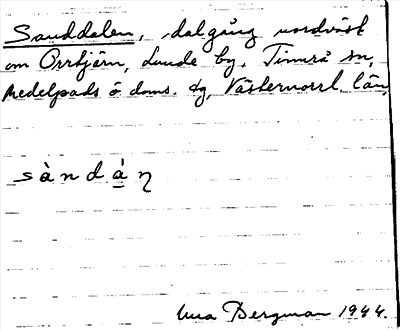 Sanddalen, dalgång nordväst
om Orrtjärn, Lunde by, Timrå sn,
Medelpads ö. doms. tg, Västernorrl. län,
sàndáη
Bergman 1944.